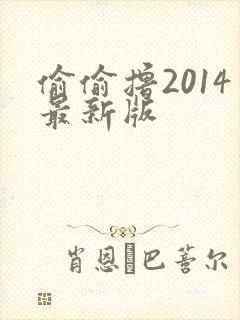 偷偷撸2014
最新版
肖恩·巴蒈尔